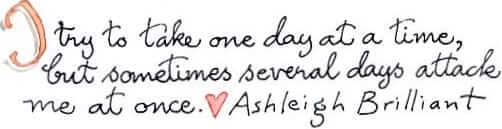 I try to take one day at a time,
but sometimes several days attack
me at once.♥Ashleigh Brilliant